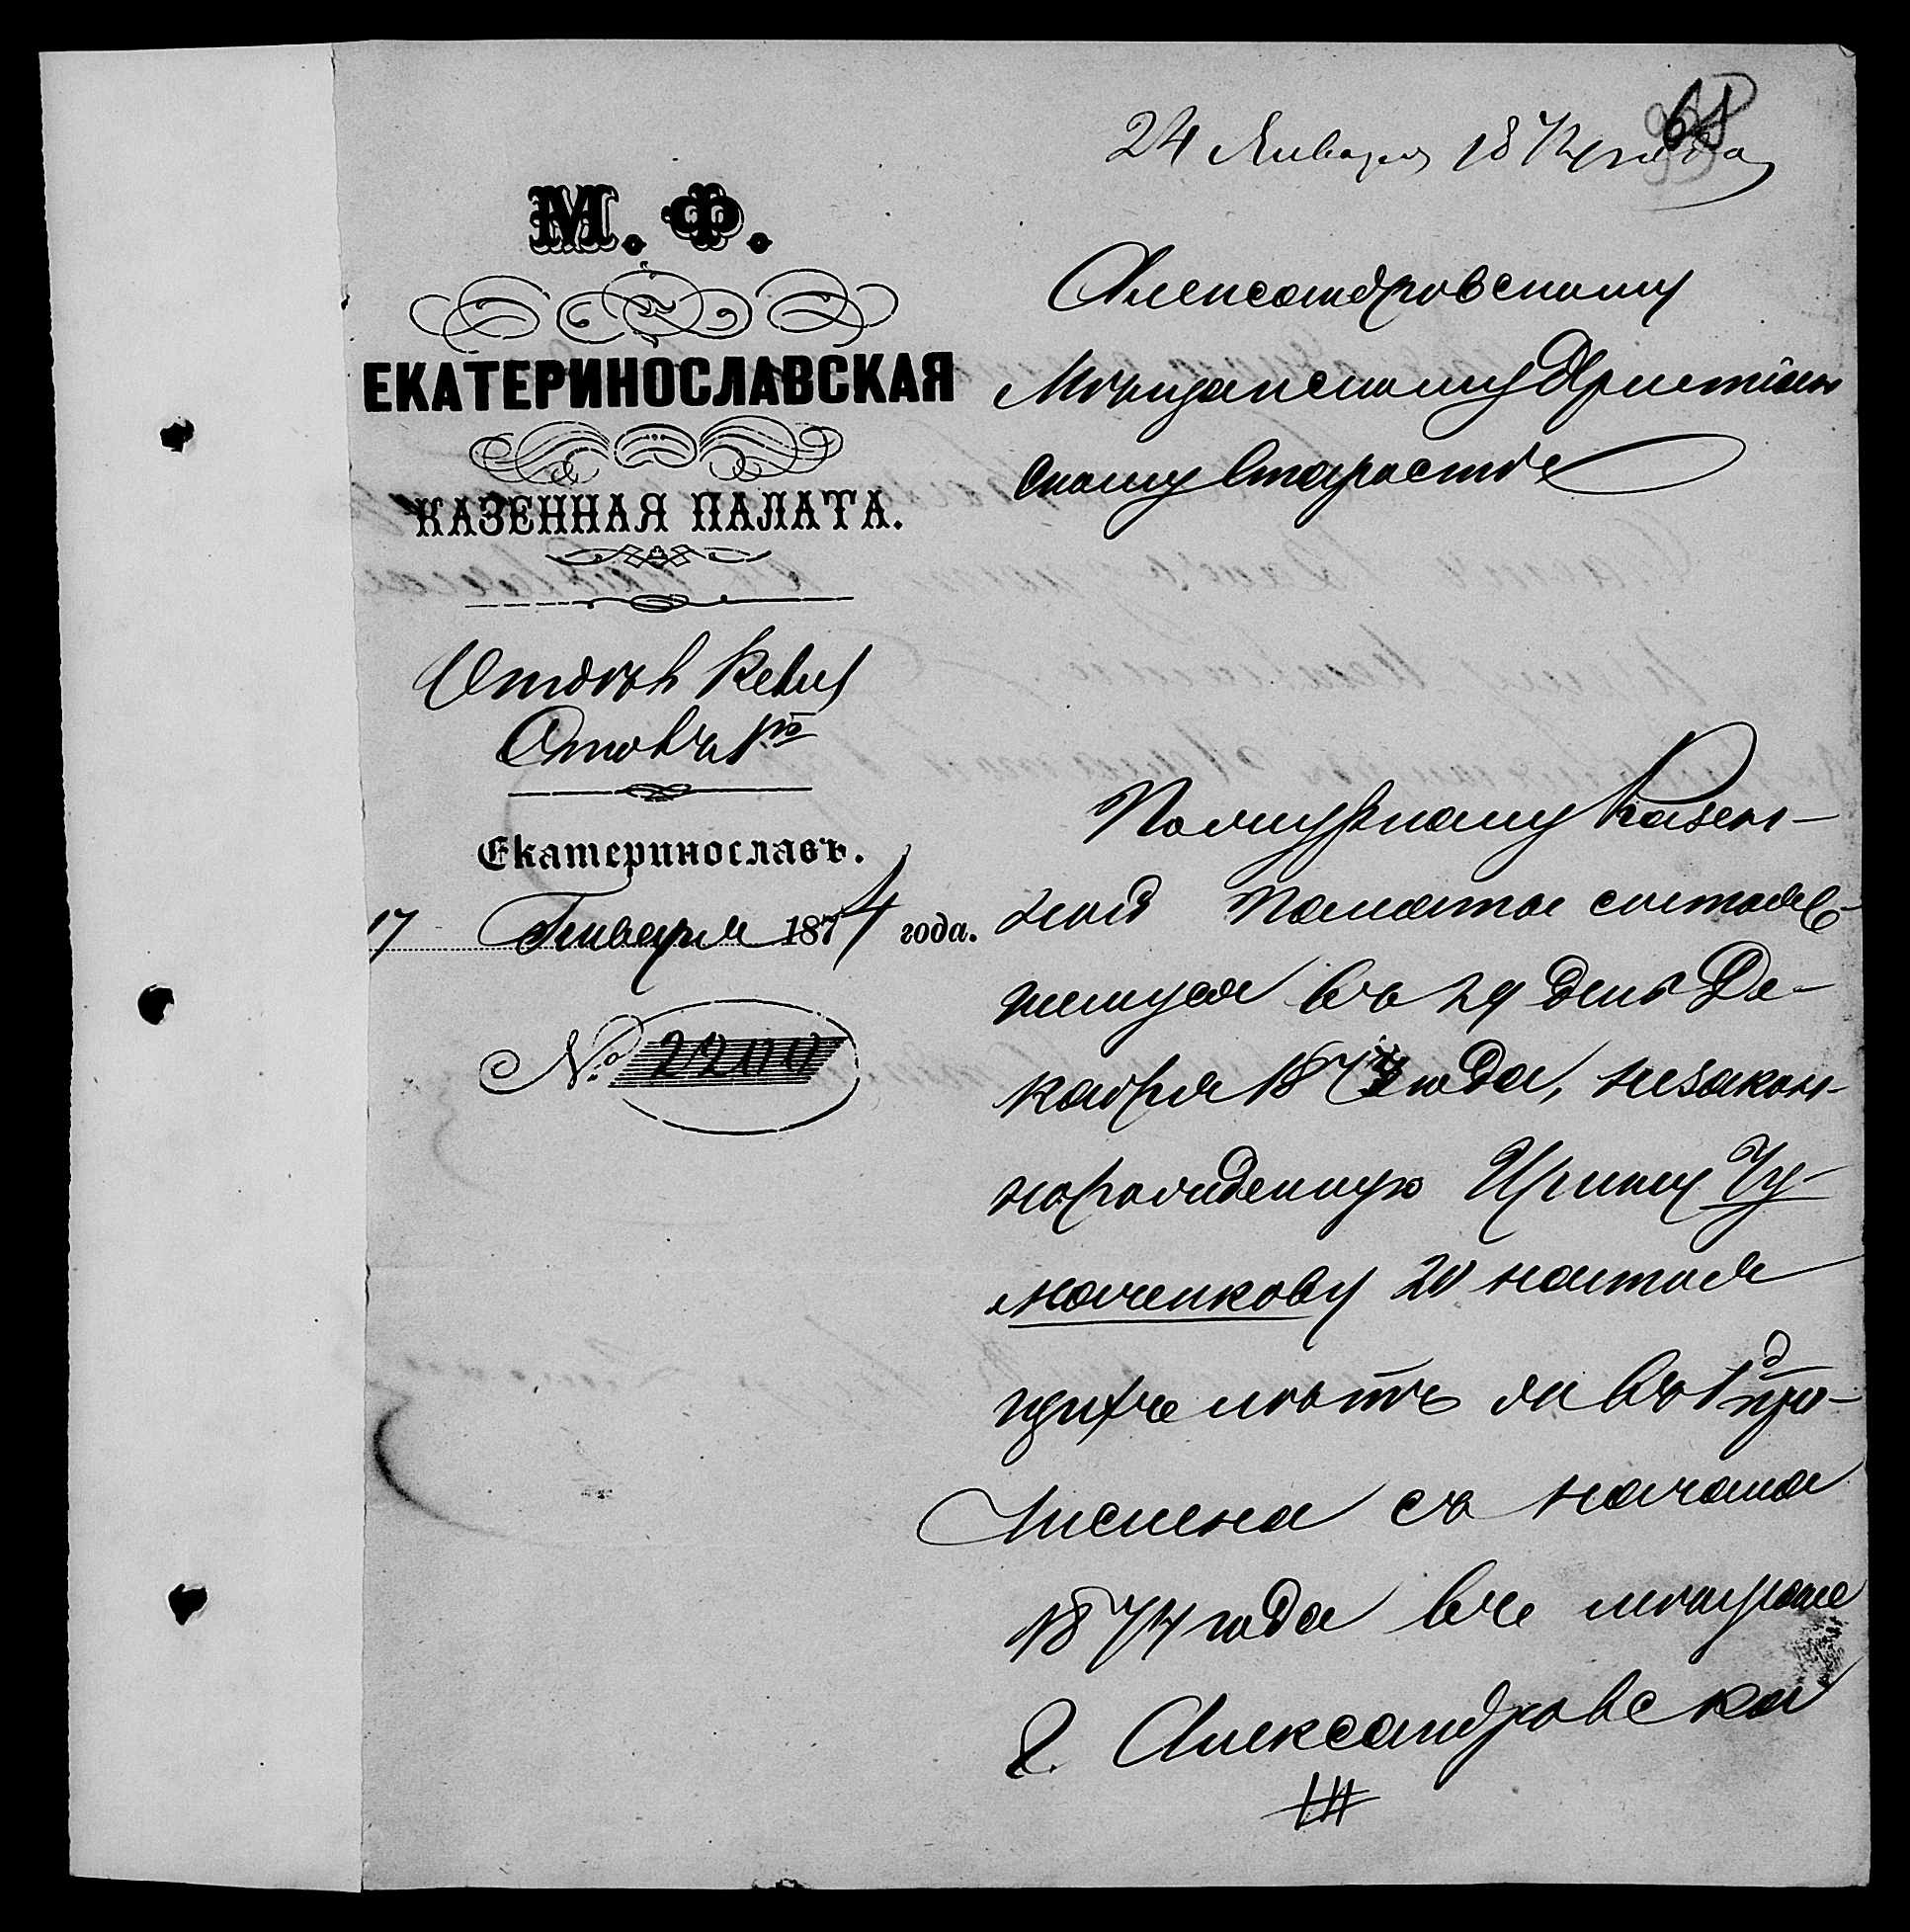 68
24 Января 1874 года
М. Ф.
ЕКАТЕРИНОСЛАВСКАЯ
КАЗЕННАЯ ПАЛАТА.
Столъ 1го
Екатеринославъ.
17 Генваря 1874 года.
№ 2200
Александровскому
Мѣщанскому Христіан
скому Старостѣ
По журналу Казен-
ной Палаты состояв-
шемуся въ 29 день Де-
кабря 1873 года, незакон-
норожденную Ирину Чу-
маченкову
числена съ начала
1874 года въ мещане
г. Александровска